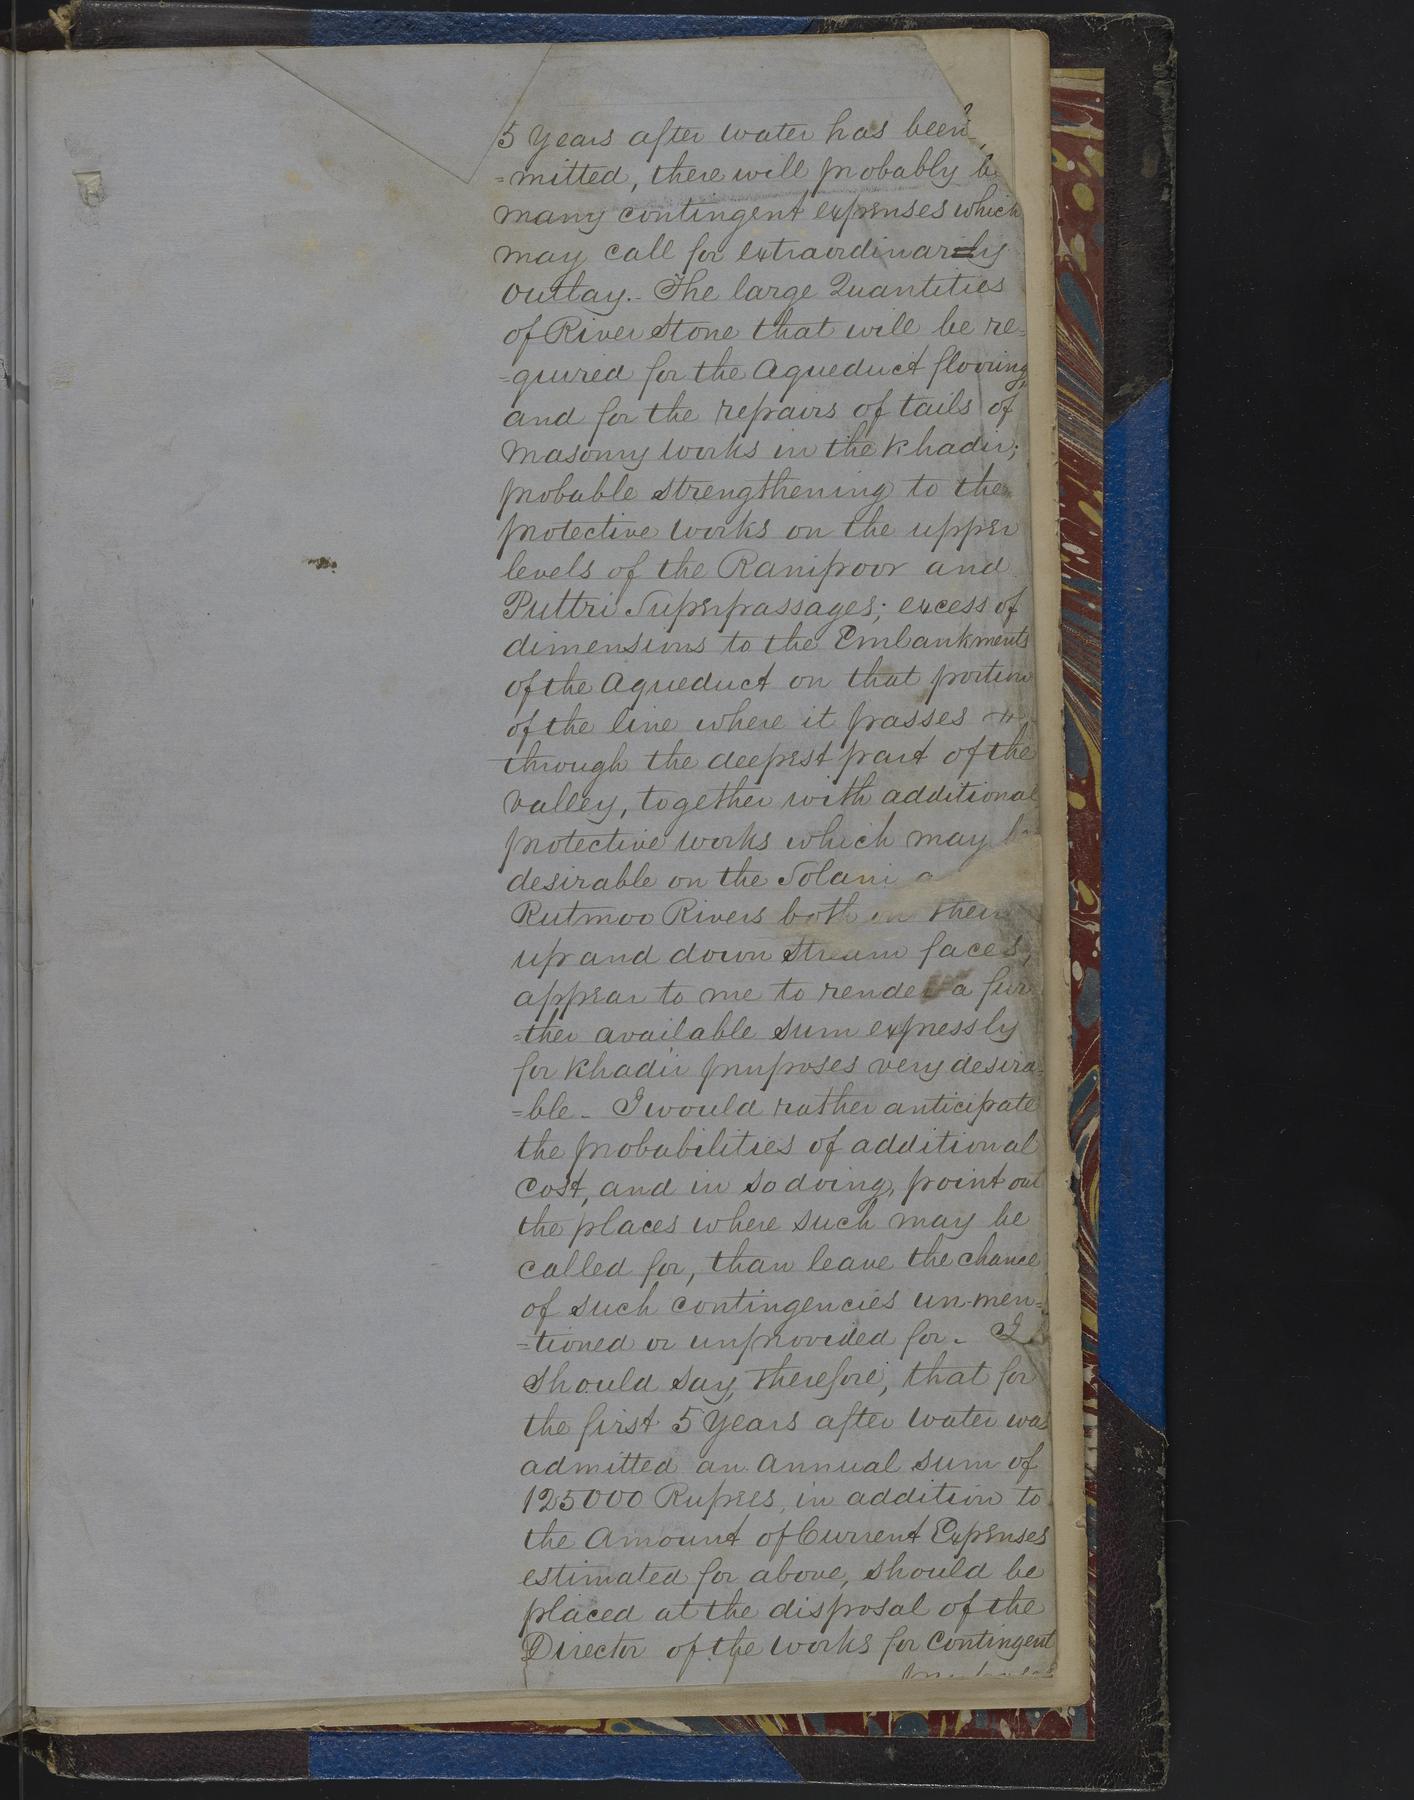 5 Years after water has been
=mitted, there will probably b
many contingent expenses which
may call for extraordinarily
outlay. - The large Quantities
of River Stone that will be re=
=quired for the Aqueduct flooring,
and for the repairs of tails of
Masonry works in the Khadir;
probable strengthening to the
protective works on the upper
levels of the Ranipoor and
Puttri Superpassages; excess of
dimensions to the Embankments
of the Aqueduct on that portion
of the line where it passes
through the deepest part of the
valley, together with additional
protective works which may be
desirable on the Solani a
Rutmoo Rivers both on their
up and down stream faces,
appear to me to render a fur
=ther available sum expressly
for Khadir purposes very desira=
=ble - I would rather anticipate
the probabilities of additional
cost, and in so doing, point out
the places where such may be
called for, than leave the chance
of such contingencies un-men=
=tioned or unprovided for. I
should say, therefore, that for
the first 5 Years after water was
admitted an Annual sum of
125000 Rupees, in addition to
the Amount of Current Expenses
estimated for above, should be
placed at the disposal of the
Director of the works for contingent